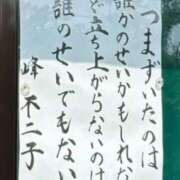 つまずいたのは
誰かのせいかもしれない
ど立ち上がらないのは
誰のせいでもない
峰不二子